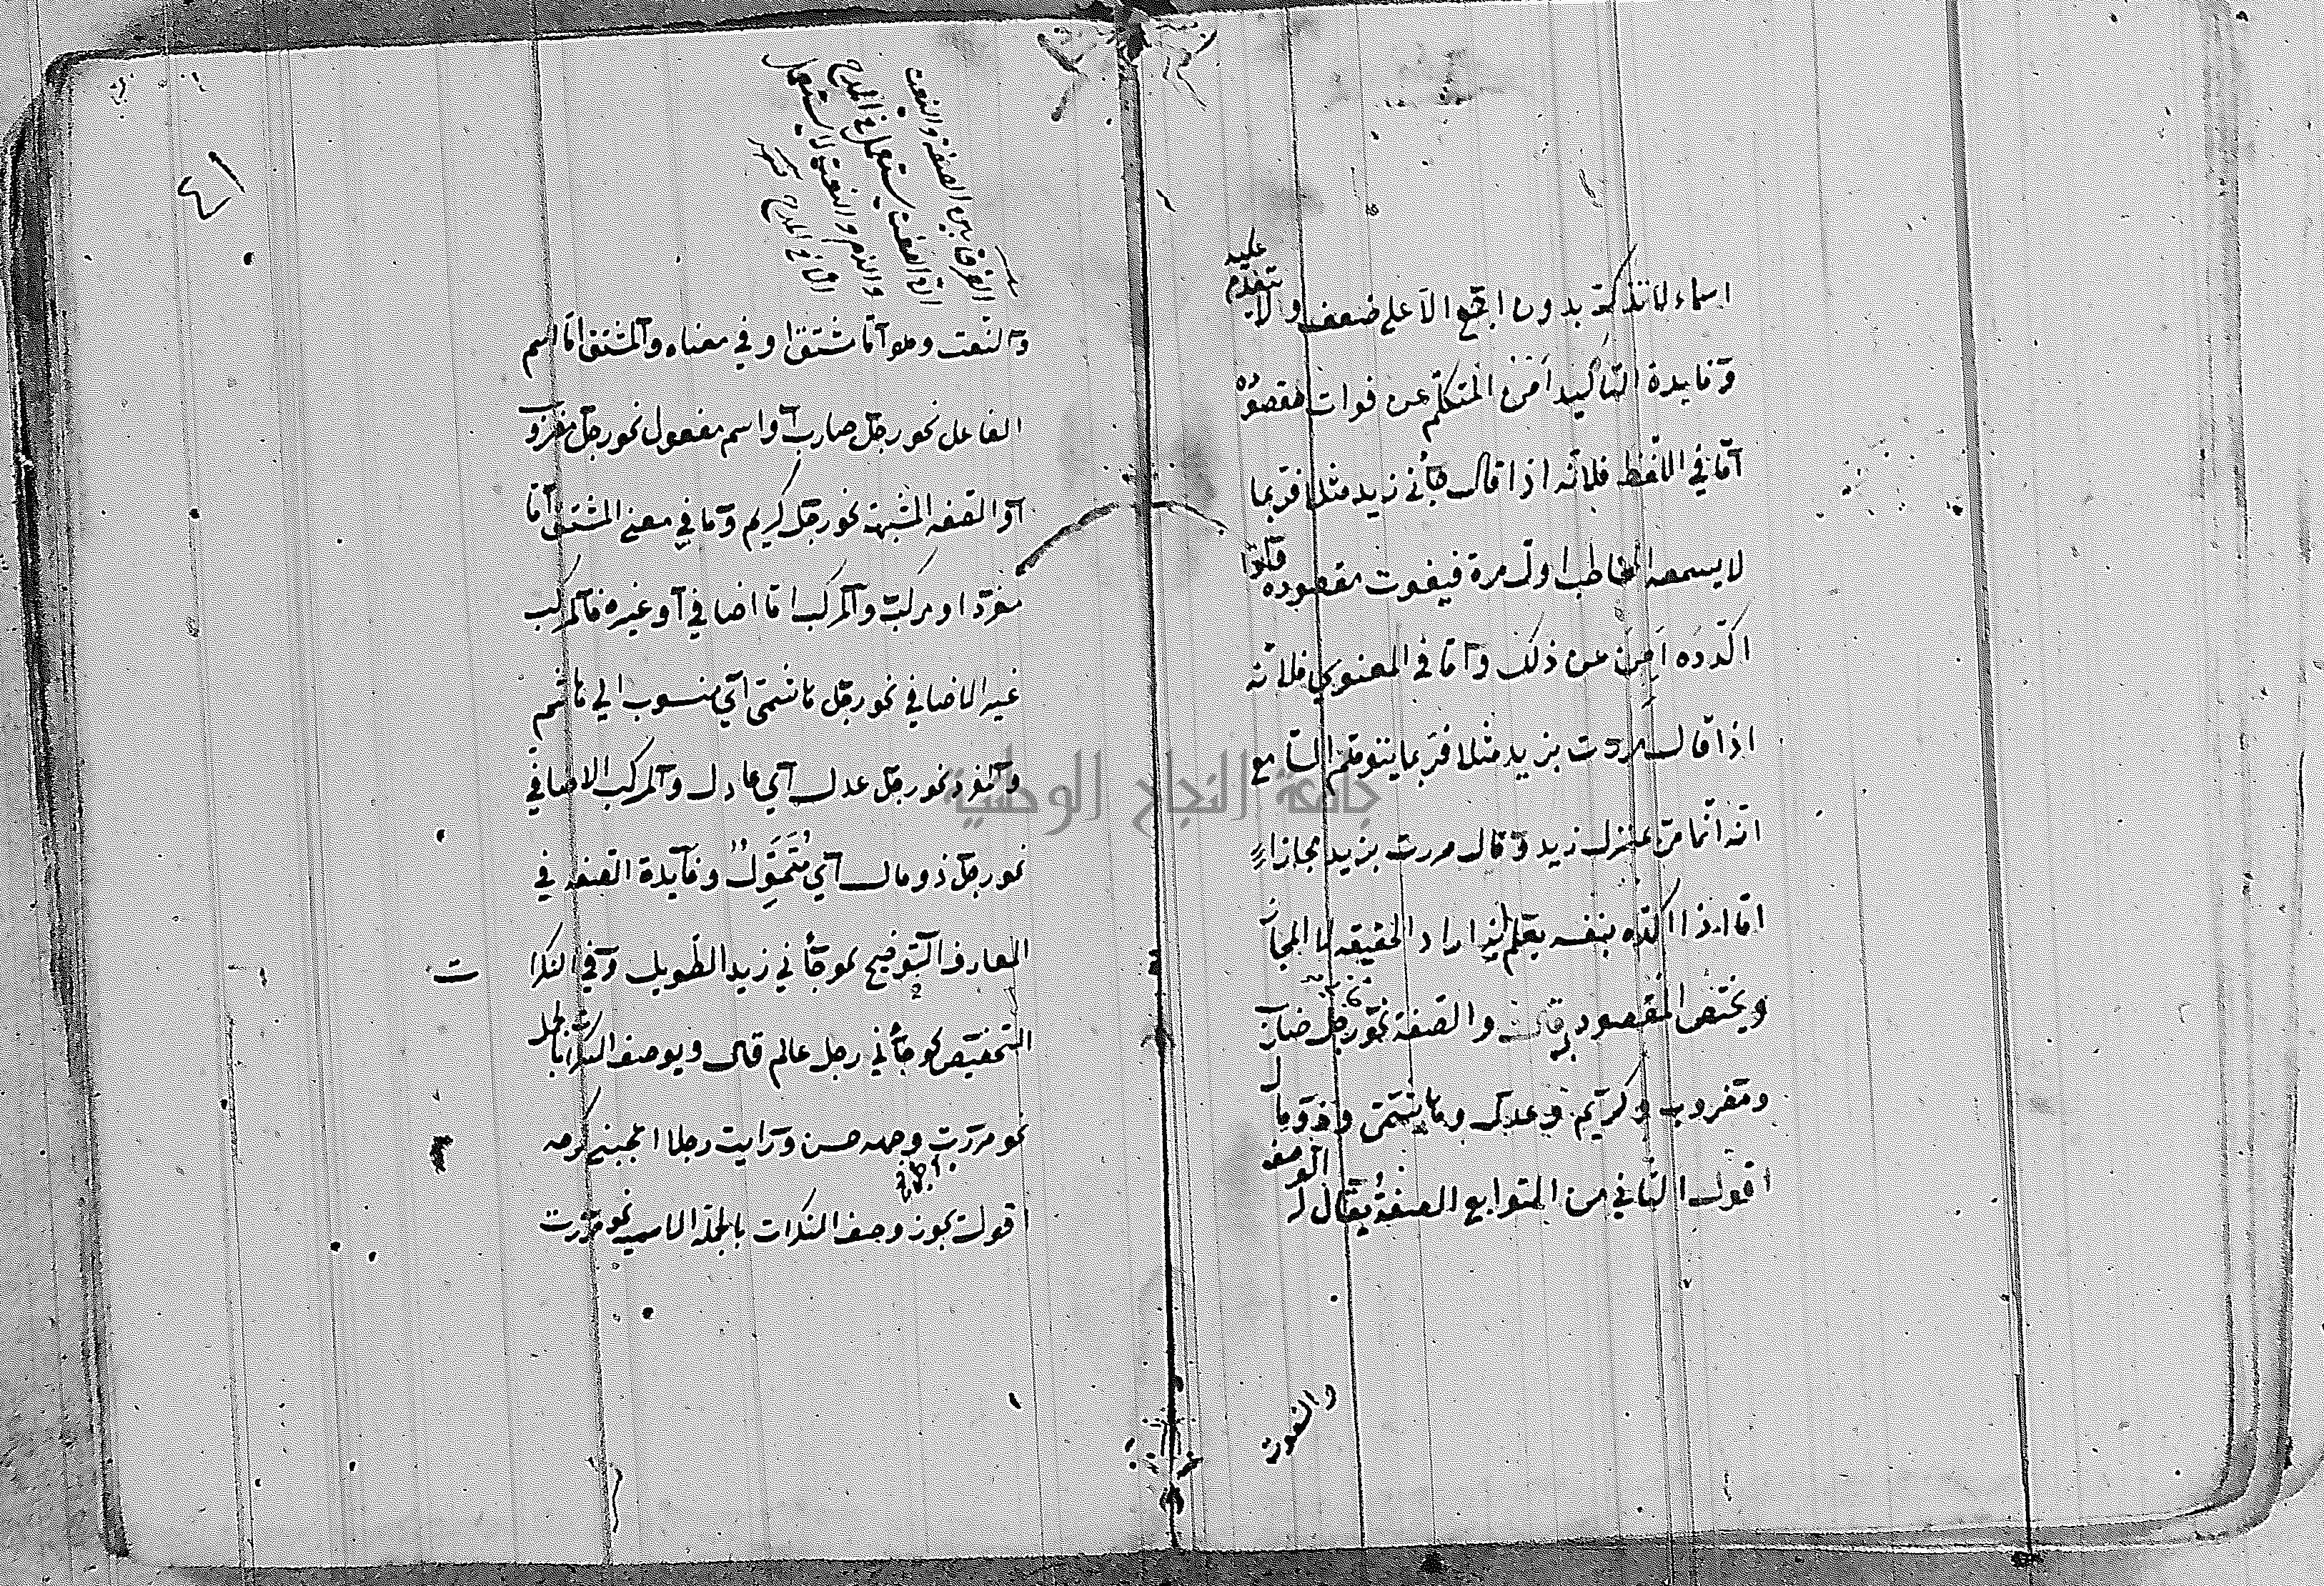 اسماء لا تذكر بدون اجمع الا على ضعف ولا يتقدم
عليه
وفايدة التأكيد أمن المتكلم عن فوات مقصوده
أما في اللفظ فلانه اذا قال جأني زيد مثلا فربما
لا يسمعه المخاطب اول مرة فيفوت مقصوده فاذا
اكّده أمن عن ذلك وأما في المعنوي فلانه
اذا قال مررت بزيد مثلا فربما يتوهم السامع
انه انما مر بمنزل زيد وقال مررت بزيد مجازا
اما اذا اكّده بنفسه يعلم انه اراد الحقيقة لا المجاز
ويختص المقصود قال والصفة نحو رجل ضارب
ومضروب وكريم وعدل وهاشمي وذو مال
اقول الثاني من التوابع الصفة يقال له الوصف
والنعت
الفرق بين الصفة والنعت
ان الصفة يستعمل في المدح
والذم والنعت لا يستعمل
الا في المدح
والنعت وهو اما مشتق او في معناه والمشتق اما اسم
الفاعل نحو رجل ضارب أو اسم مفعول نحو رجل مضروب
أو الصفة المشبهة نحو رجل كريم وما في معنى المشتق اما
مفرد او مركب والمركب اما اضافي أو غيره فالمركب
غير الاضافي نحو رجل هاشمي أي منسوب الي هاشم
والمفرد نحو رجل عدل أي عادل والمركب الاضافي
نحو رجل ذو مال أي مُتَمَوِّلٌ وفايدة الصفة في
المعارف التوضيح نحو جأني زيد الطويل وفي النكرات
التخصيص نحو جأني رجل عالم قال ويوصف النكرات بالجمل
نحو مررت برجل وجهه حسن ورايت رجلا اعجبني كرمه
اقول يجوز وصف النكرات بالجملة الاسمية نحو مررت
جامعة النجاح الوطنية